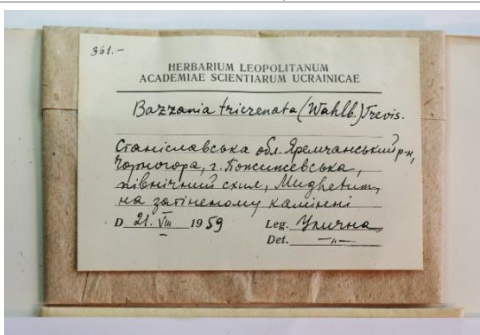 361.-
HERBARIUM LEOPOLITANUM
ACADEMIAE SCIENTIARUM UCRAINICAE
Bazzania tricrenata (Wahlb.) Trevis.
Станіславська обл. Яремчанський р-н,
Чорногора, г. Пожижевська,
північний схил,
на затіненому камінні
D 21. VIII 1959 Leg. Улична
Det. —„—